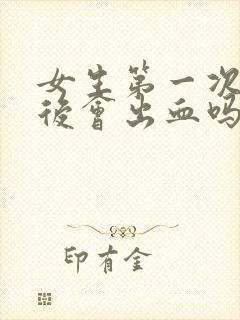 女生第一次
後會出血吗
印有金